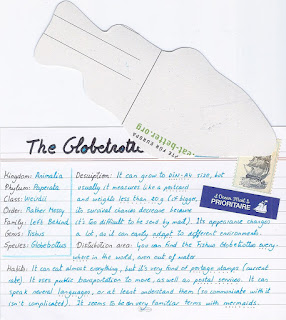 TE FOR EUROPA
eat-better.org
The Globetrotter
PRIORITAIRE
Kingdom: Animalia
Phylum: Paperata
Class: Weirdii
Order: Rather Messy
Family: Left Behind
Genus: Fishus
Species: Globetottus
Description: It can grow to DIN-A4 size, but
usually it measures like a postcard
and weights less than 20g (if bigger,
its survival chances decrease because
it's too difficult to be sent by mail). Its appearance changes
a lot, as it can easily adapt to different environments.
Distribution area: You can find the Fishus Globetottus every-
where in the world, even out of water
Habits: It can eat almost everything, but it's very fond of postage stamps (current
rate). It uses public transportation to move, as well as postal services. It can
speak several languages, or at least understand them (so communicate with it
isn't complicated). It seems to be on very familiar terms with mermaids.